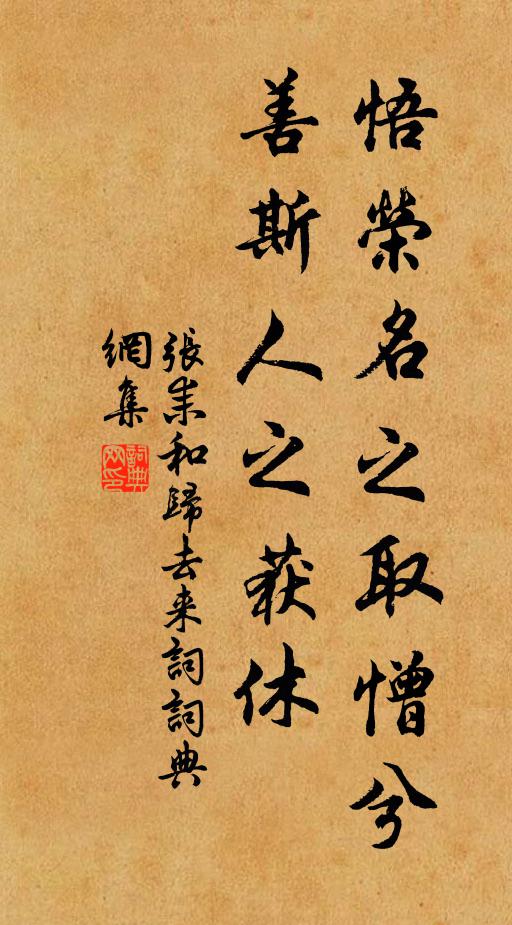 悟榮名之取憎兮
善斯人之获休
張耒和歸去来詞詞典
網集
詞典网印